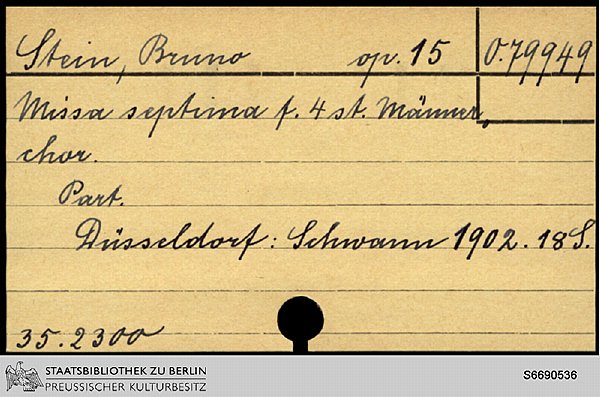 Stein, Bruno op. 15 O. 79949
Missa septima f. 4 st. Männer,
chor.
Part.
Düsseldorf: Schwann 1902. 18 S.
35.2300
STAATSBIBLIOTHEK ZU BERLIN
PREUSSISCHER KULTURBESITZ
S6690536